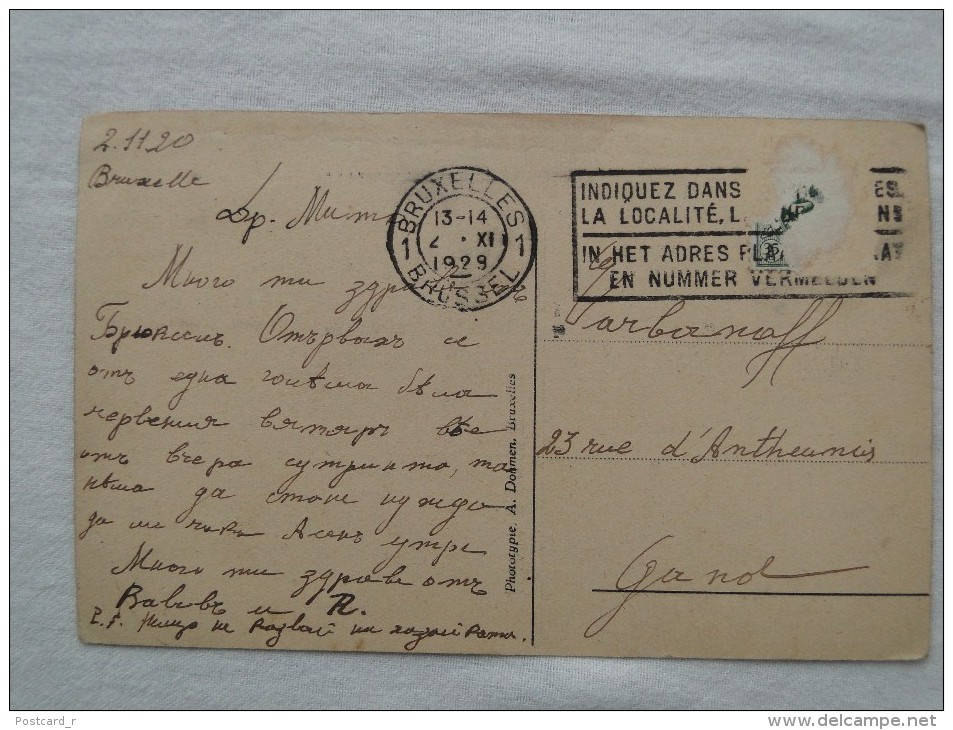 2.11.20
Bruxelle
Др. Мит
Много ти здра
Брюксель. Отървахъ се
отъ една голѣма бѣла
червения вятаръ вѣе
отъ вчера сутринта, та
нѣма да стане нужда
да ми Асенъ утре
Много ти здраве отъ
и П.
P.S. Нищо не на хазяйката.
BRUXELLES 1
13-14
2 XI
1929
1 BRUSSEL
INDIQUEZ DANS ES
LA LOCALITÉ, L
IN HET ADRES PLA
EN NUMMER VERMELDEN
Phototypie. A. Dohmen, Bruxelles
Tarbanoff
23 rue d'Antheunis
Gand
Postcard_r
www.delcampe.net